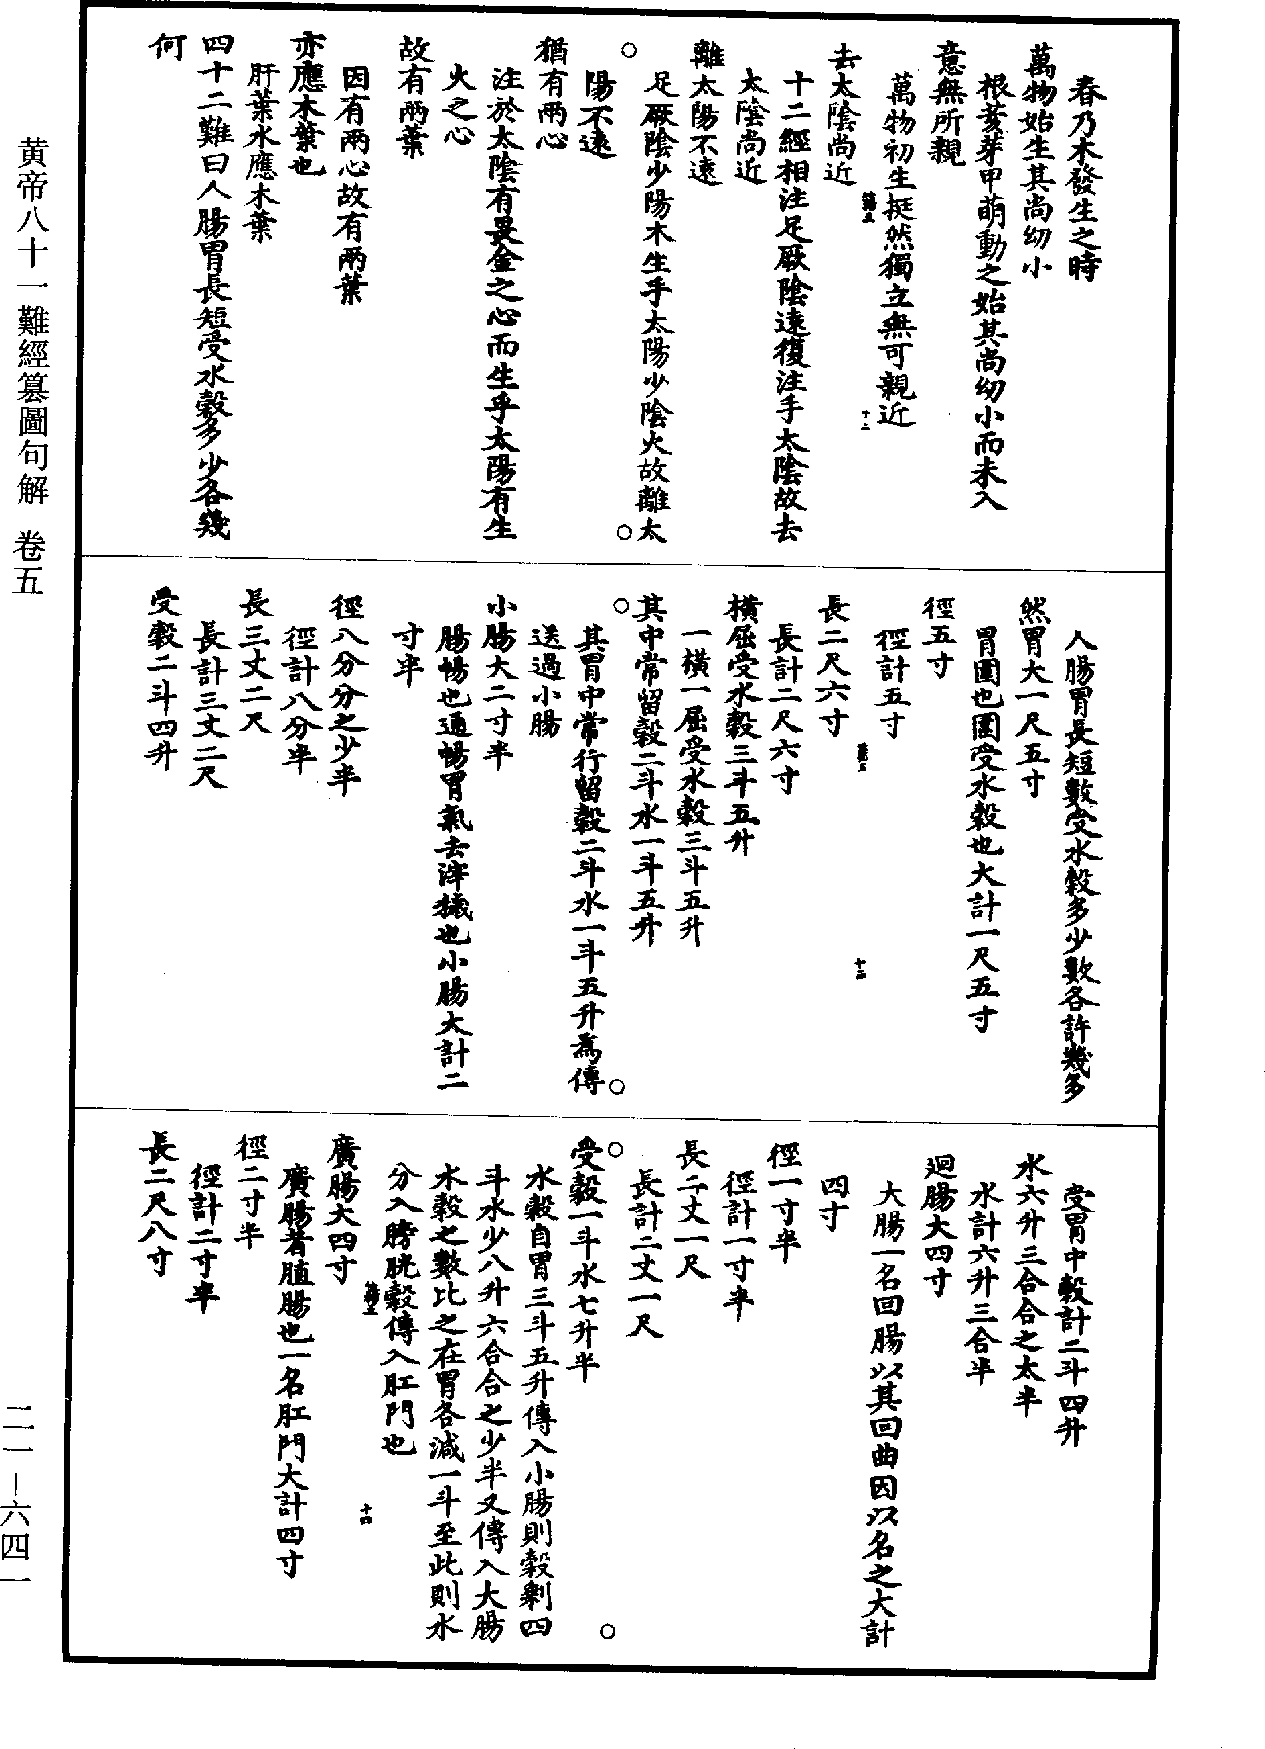 春乃木發生之時
萬物始生其尚幼小
根荄芽甲萌動之始其尚幼小而未入
意無所親
萬物初生挺然獨立無可親近
去太陰尚近
十二經相注足厥陰遠復注手太陰故去
太陰尚近
離太陽不遠
足厥陰少陽木生手太陽少陰火故離太
陽不遠
猶有兩心
注於太陰有畏金之心而生乎太陽有生
火之心
故有兩葉
因有兩心故有兩葉
亦應木葉也
肝葉水應木葉
四十二難曰人腸胃長短受水穀多少各幾
何
人腸胃長短數受水穀多少數各許幾多
然胃大一尺五寸
胃圍也圍受水穀也大計一尺五寸
徑五寸
徑計五寸
長二尺六寸
長計二尺六寸
橫屈受水穀三斗五升
一橫一屈受水穀三斗五升
其中常留穀二斗水一斗五升
其胃中常行留穀二斗水一斗五升為傳
送過小腸
小腸大二寸半
腸暢也通暢胃氣去滓穢也小腸大計二
寸半
徑八分分之少半
徑計八分半
長三丈二尺
長計三丈二尺
受穀二斗四升
受胃中穀計二斗四升
水六升三合合之太半
水計六升三合半
迴腸大四寸
大腸一名回腸以其回曲因以名之大計
四寸
徑一寸半
徑計一寸半
長二丈一尺
長計二丈一尺
受穀一斗水七升半
水穀自胃三斗五升傳入小腸則穀剩四
斗水少八升六合合之少半又傳入大腸
水穀之數比之在胃各減一斗至此則水
分入膀胱穀傳入肛門也
廣腸大四寸
廣腸者䐈腸也一名肛門大計四寸
徑二寸半
徑計二寸半
長二尺八寸
黄帝八十一難經纂圖句解 卷五
二一－六四一